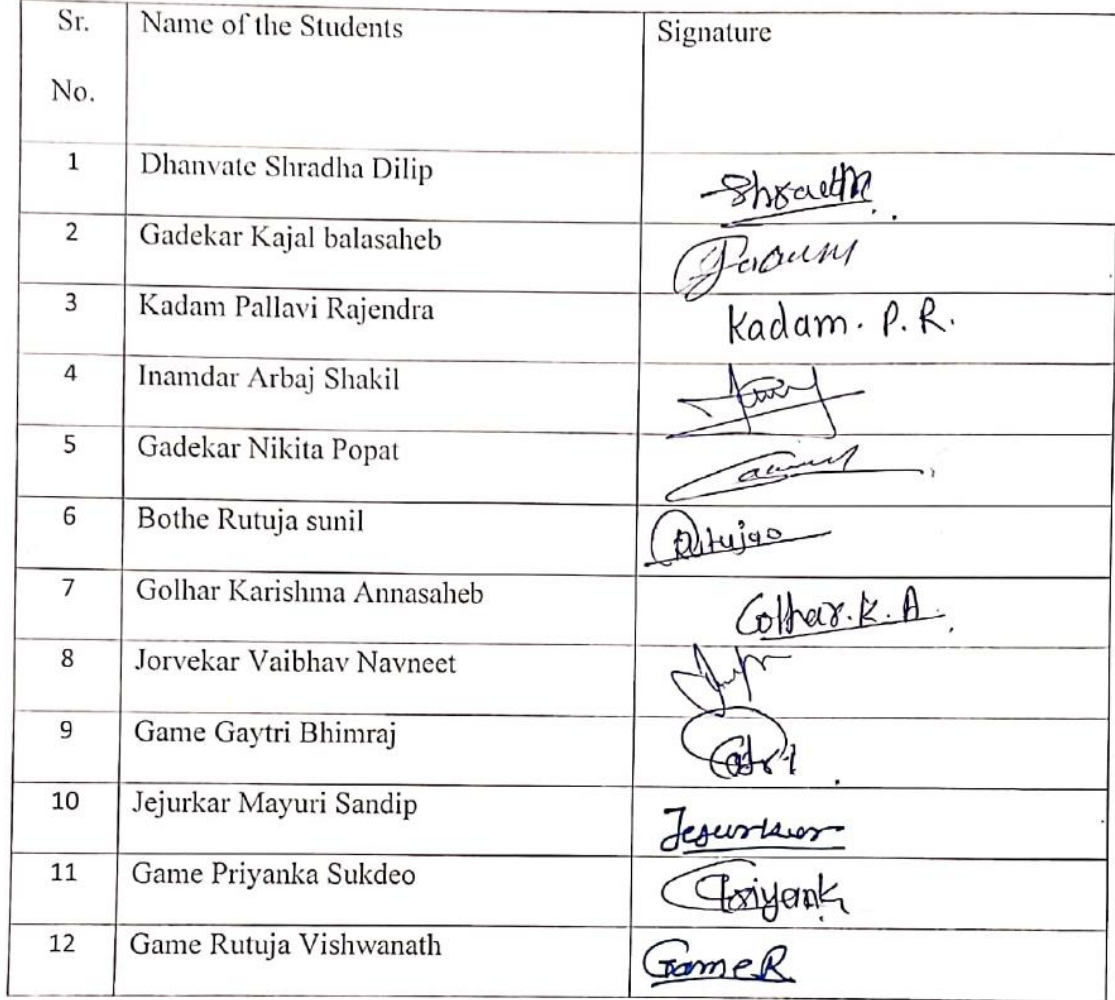 Sr. No. Name of the Students Signature
1 Dhanvate Shradha Dilip
2 Gadekar Kajal balasaheb
3 Kadam Pallavi Rajendra Kadam. P. R.
4 Inamdar Arbaj Shakil
5 Gadekar Nikita Popat
6 Bothe Rutuja sunil
7 Golhar Karishma Annasaheb Golhar. K. A.
8 Jorvekar Vaibhav Navneet
9 Game Gaytri Bhimraj
10 Jejurkar Mayuri Sandip
11 Game Priyanka Sukdeo Priyank
12 Game Rutuja Vishwanath Game R